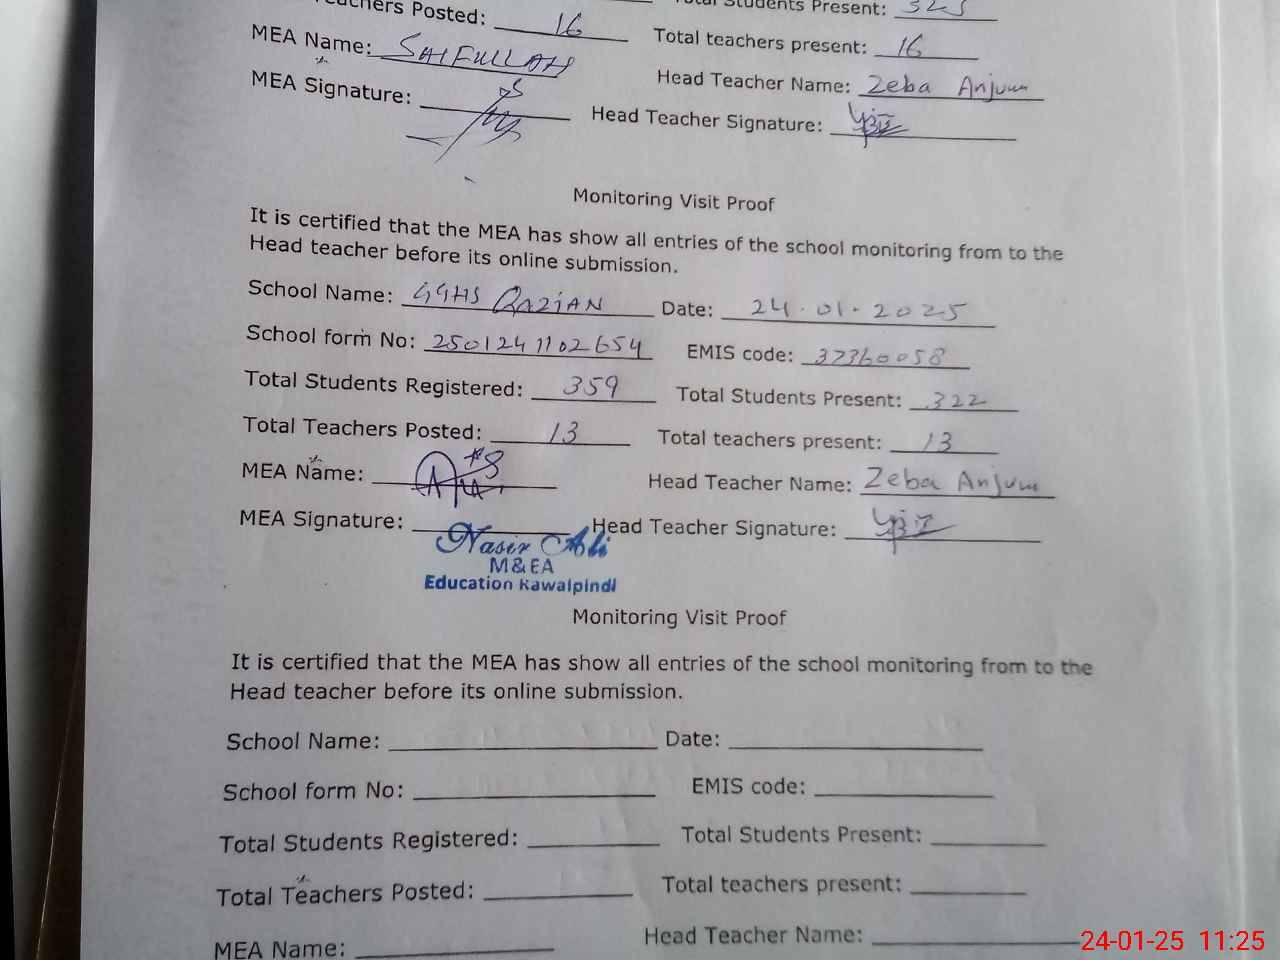 Teachers Posted: 16 Total Students Present: 323
MEA Name: SAIFULLAH Total teachers present: 16
MEA Signature: Head Teacher Name: Zeba Anjum
Head Teacher Signature:
Monitoring Visit Proof
It is certified that the MEA has show all entries of the school monitoring from to the
Head teacher before its online submission.
School Name: GGHS QAZIAN Date: 24.01.2025
School form No: 2501241102654 EMIS code: 37360058
Total Students Registered: 359 Total Students Present: 322
Total Teachers Posted: 13 Total teachers present: 13
MEA Name: Head Teacher Name: Zeba Anjum
MEA Signature: Head Teacher Signature:
Nasir Ali
M&EA
Education Rawalpindi
Monitoring Visit Proof
It is certified that the MEA has show all entries of the school monitoring from to the
Head teacher before its online submission.
School Name: Date:
School form No: EMIS code:
Total Students Registered: Total Students Present:
Total Teachers Posted: Total teachers present:
MEA Name: Head Teacher Name:
24-01-25 11:25